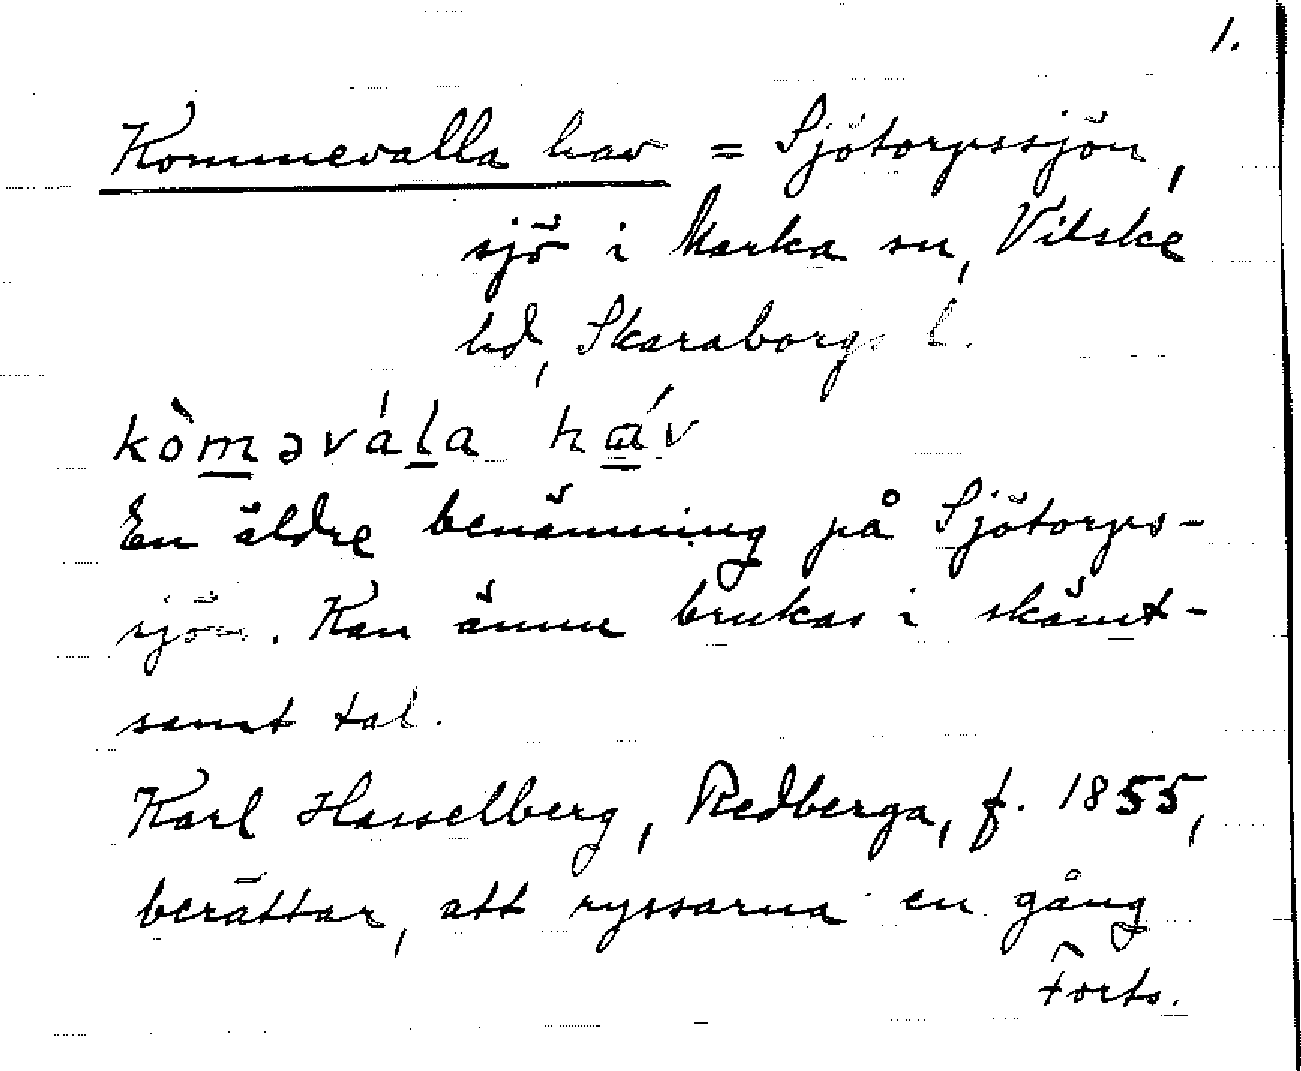 1.
Kommevalla hav = Sjötorpssjön,
sjö i Marka sn, Vilske
hd, Skaraborgs l.
kòm̲əvál̲a há̲v
En äldre benämning på Sjötorps-
sjön. Kan ännu brukas i skämt-
samt tal.
Karl Hasselberg, Redberga, f. 1855,
berättar, att ryssarna en gång
Forts.